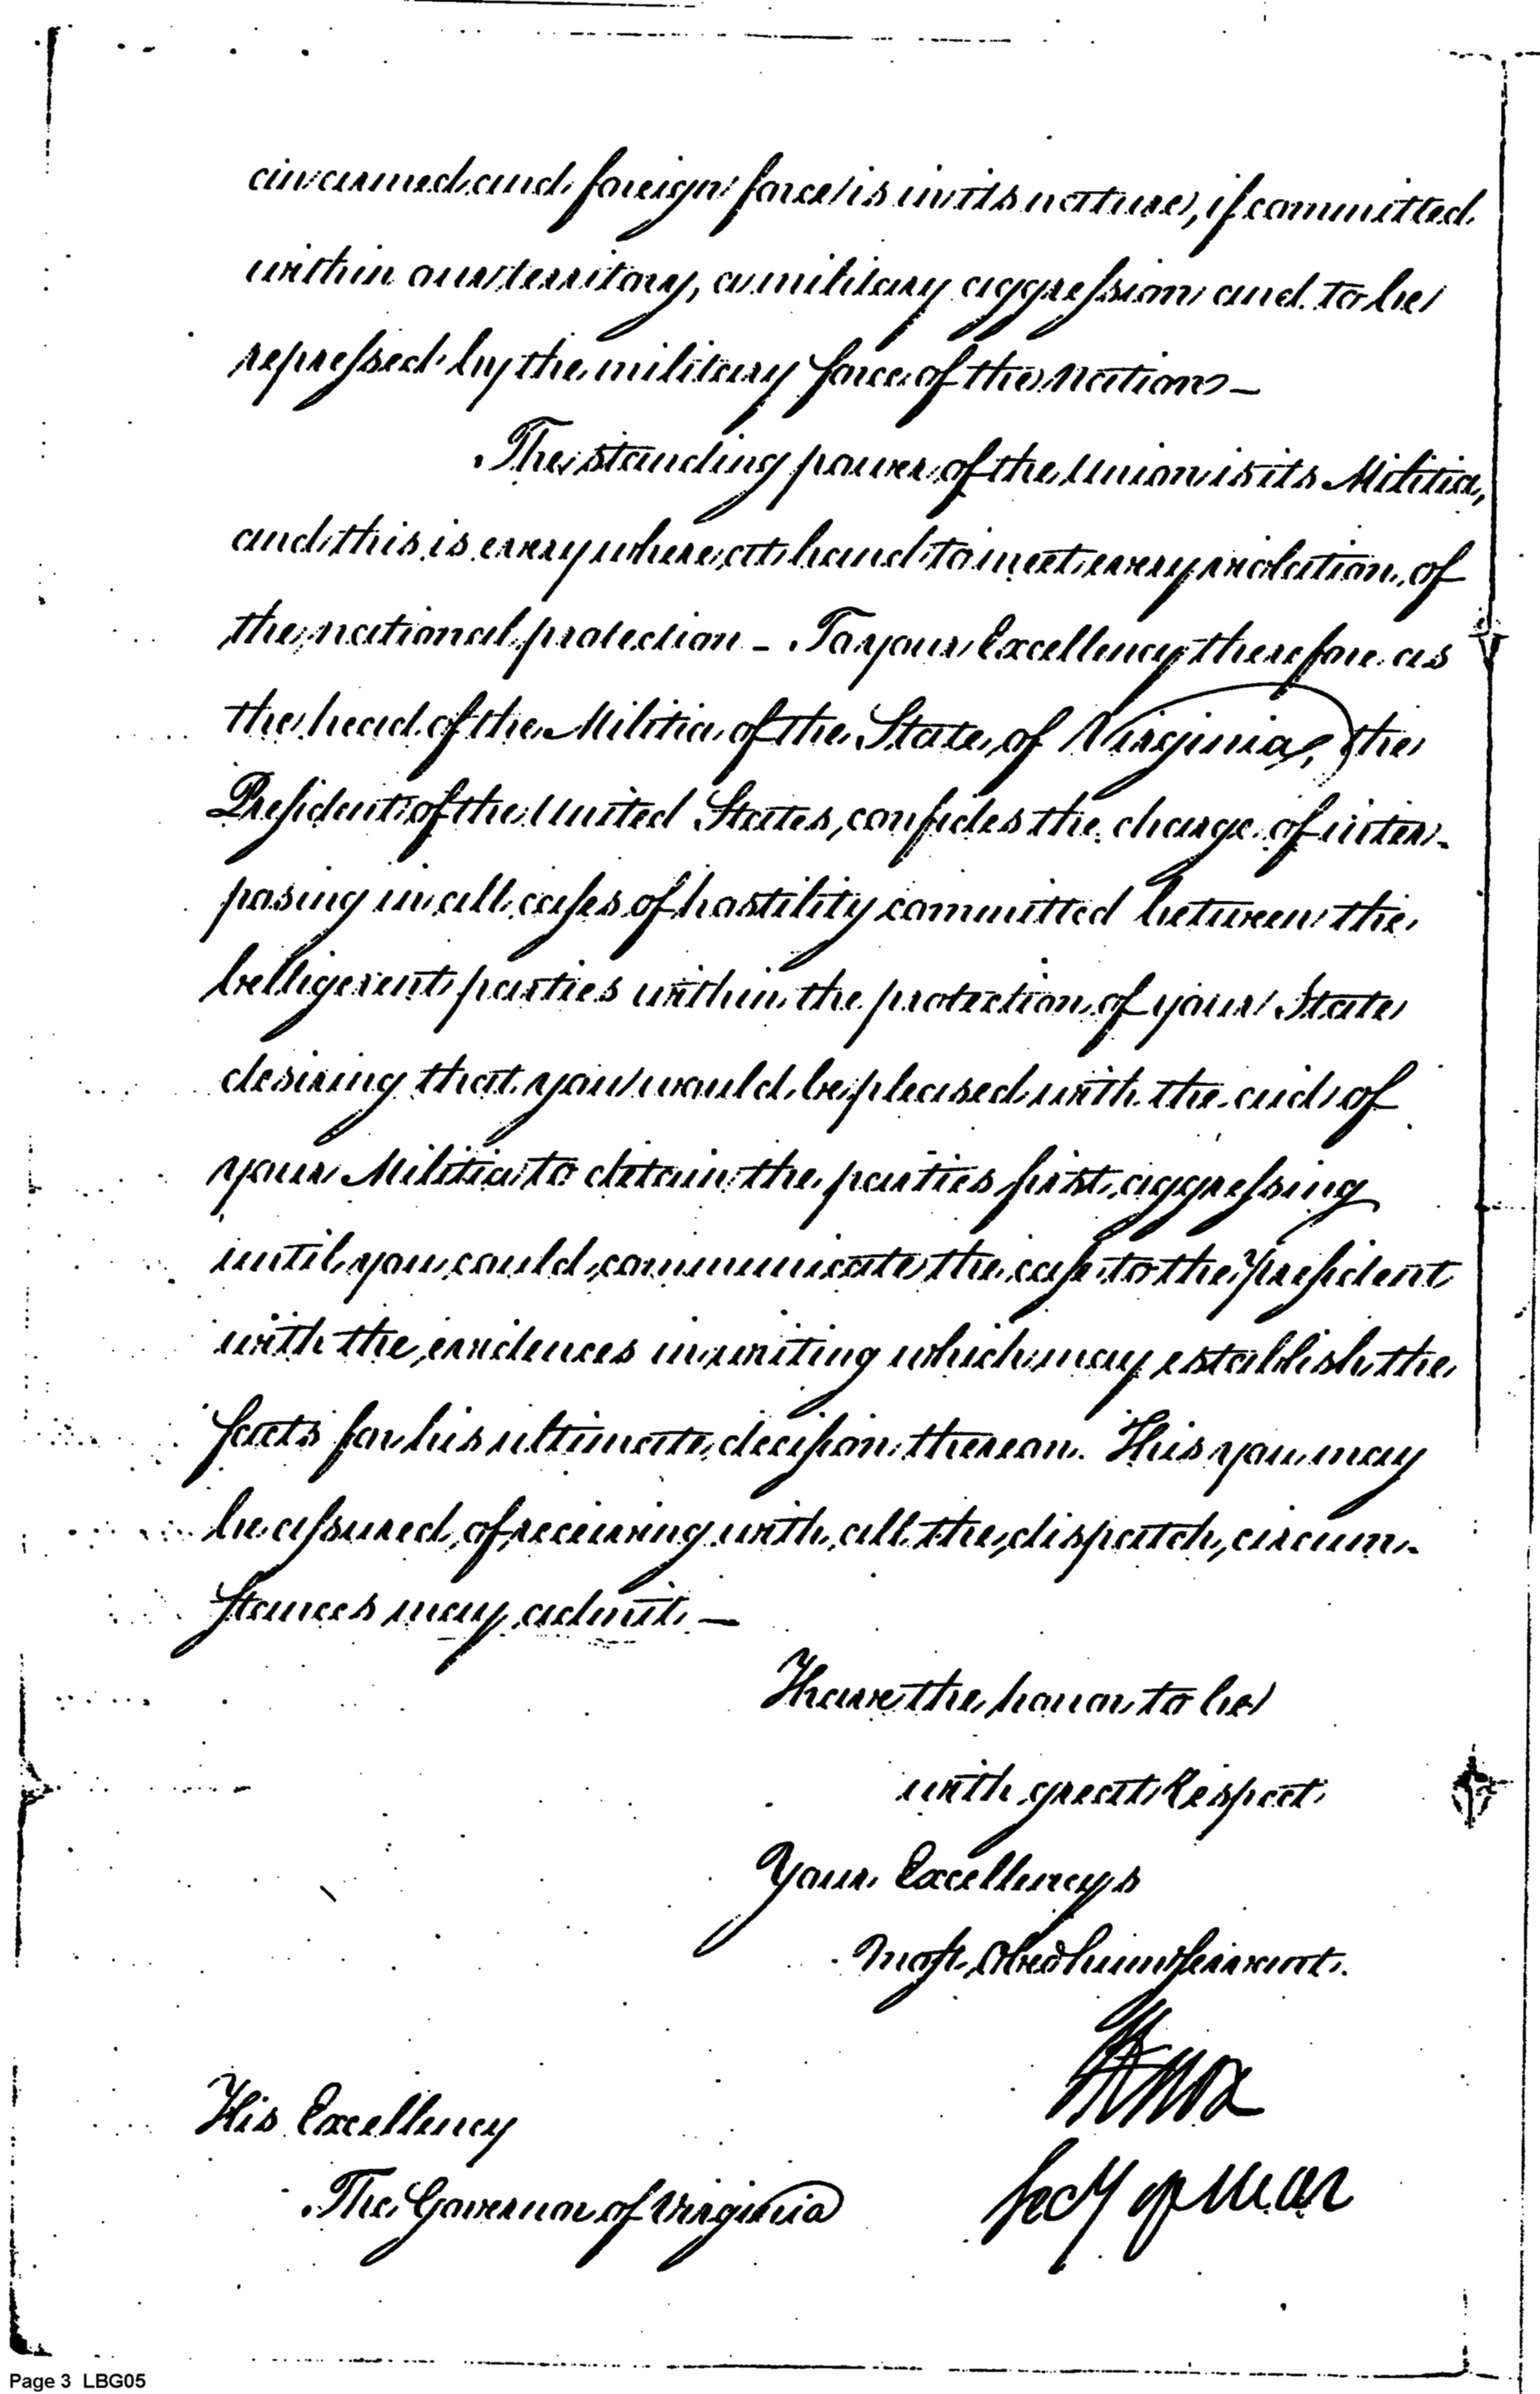 an armed and foreign force is in its nature, if committed
within our territory, a military aggression and to be
repressed by the military force of the Nation —
The standing power of the Union is its Militia,
and this is every where at hand to meet every violation of
the national protection — To your Excellency therefore as
the head of the Militia of the State of Virginia, the
President of the United States, confides the charge of inter-
posing in all cases of hostility committed between the
belligerent parties within the protection of your State
desiring that you would be pleased with the aid of
your Militia to detain the parties first aggressing
until you could communicate the case to the President
with the evidences in writing which may establish the
facts for his ultimate decision thereon. This you may
be assured of receiving with all the dispatch, circum-
stances may admit —
I have the honor to be
with great Respect
Your Excellencys
Most Obed hum Servant.
HKnox
Secy of War
His Excellency
The Governor of Virginia
Page 3 LBG05